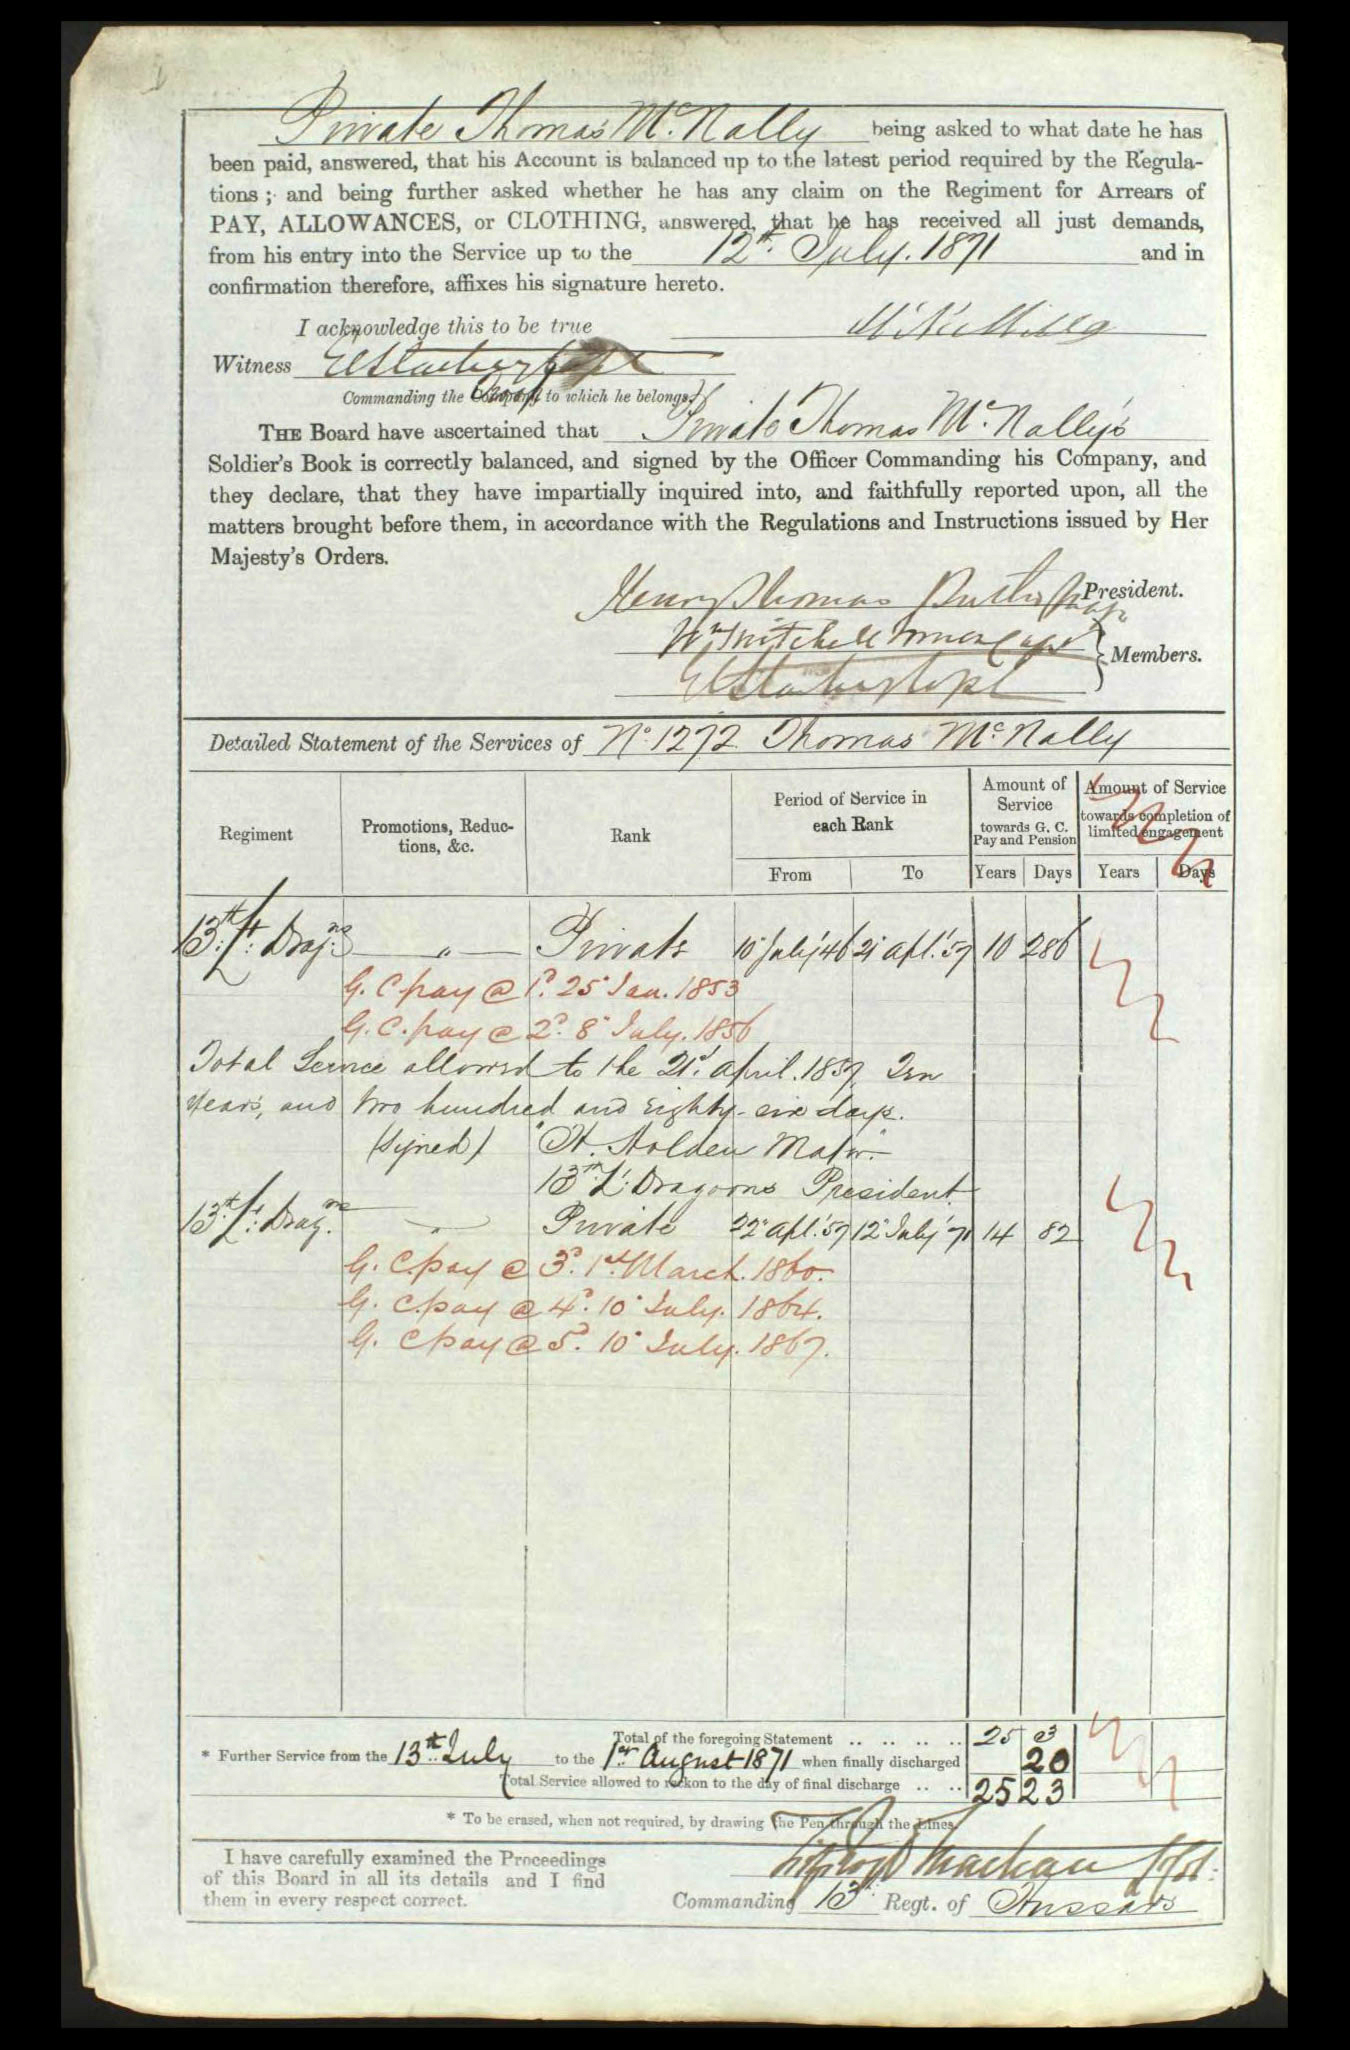 Private Thomas McNally being asked to what date he has
been paid, answered, that his Account is balanced up to the latest period required by the Regula-
tions; and being further asked whether he has any claim on the Regiment for Arrears of
PAY, ALLOWANCES, or CLOTHING, answered, that he has received all just demands,
from his entry into the Service up to the 12th July. 1871 and in
confirmation therefore, affixes his signature hereto.
I acknowledge this to be true
Witness
Commanding the Company Troop to which he belongs.
THE Board have ascertained that Private Thomas McNally's
Soldier's Book is correctly balanced, and signed by the Officer Commanding his Company, and
they declare, that they have impartially inquired into, and faithfully reported upon, all the
matters brought before them, in accordance with the Regulations and Instructions issued by Her
Majesty's Orders.
Henry Thomas President.
Wm Mitchell Capt
Members.
Detailed Statement of the Services of No. 1272 Thomas McNally
Regiment
Promotions, Reduc-
tions, &c.
Rank
Period of Service in
each Rank
From To
Amount of
Service
towards G. C.
Pay and Pension
Years Days
Amount of Service
towards completion of
limited engagement
Years Days
13th Lt. Dragns — " — Private 10 July '46 21 Apl. '57 10 286
G. C. pay @ 1d. 25 Jan. 1853
G. C. pay @ 2d. 8 July. 1856
Total Service allowed to the 21st April. 1857, Ten
Years, and two hundred and eighty-six days.
(Signed) "H. Holden Major."
13th Lt. Dragoons President
13th Lt. Dragns " Private 22 Apl. '57 12 July '71 14 82
G. C. pay @ 3d. 1st March. 1860.
G. C. pay @ 4d. 10 July. 1864.
G. C. pay @ 5d. 10 July. 1867.
Total of the foregoing Statement .. .. .. .. 25 3
* Further Service from the 13th July to the 1st August 1871 when finally discharged 20
Total Service allowed to reckon to the day of final discharge .. .. 25 23
* To be erased, when not required, by drawing the Pen through the Lines.
I have carefully examined the Proceedings
of this Board in all its details and I find
them in every respect correct.
Commanding 13th Regt. of Hussars